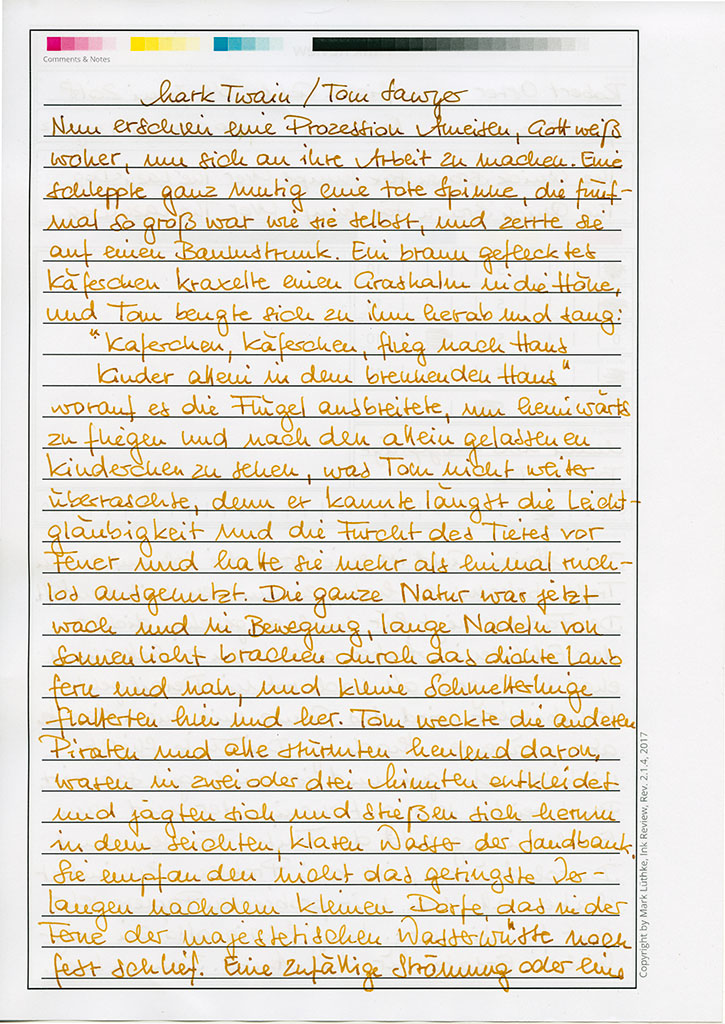 Comments & Notes
Mark Twain / Tom Sawyer
Nun erschien eine Prozession Ameisen, Gott weiß
woher, um sich an ihre Arbeit zu machen. Eine
schleppte ganz mutig eine tote Spinne, die fünf-
mal so groß war wie sie selbst, und zerrte sie
auf einen Baumstrunk. Ein braun geflecktes
Käferchen kraxelte einen Grashalm in die Höhe,
und Tom beugte sich zu ihm herab und sang:
"Käferchen, Käferchen, flieg nach Haus
Kinder allein in dem brennenden Haus"
worauf es die Flügel ausbreitete, um heimwärts
zu fliegen und nach den allein gelassenen
Kinderchen zu sehen, was Tom nicht weiter
überraschte, denn er kannte längst die Leicht-
gläubigkeit und die Furcht des Tieres vor
Feuer und hatte sie mehr als einmal ruch-
los ausgenutzt. Die ganze Natur war jetzt
wach und in Bewegung, lange Nadeln von
Sonnenlicht brachen durch das dichte Laub
fern und nah, und kleine Schmetterlinge
flatterten hin und her. Tom weckte die anderen
Piraten und alle stürmten heulend davon,
waren in zwei oder drei Minuten entkleidet
und jagten sich und stießen sich herum
in dem seichten, klaren Wasser der Sandbank.
Sie empfanden nicht das geringste Ver-
langen nach dem kleinen Dorfe, das in der
Ferne der majestetischen Wasserwüste noch
fest schlief. Eine zufällige Strömung oder eine
Copyright by Mark Lüthke, Ink Review, Rev. 2.1.4, 2017